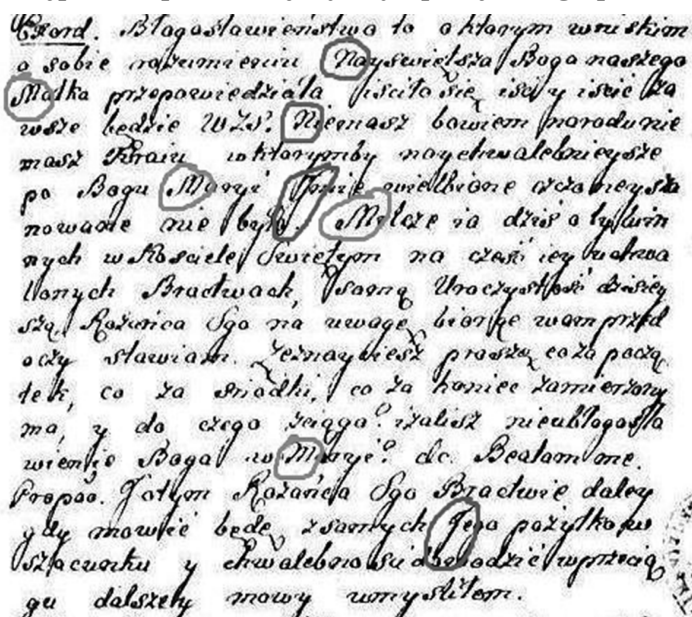 Exord. Błogosławieństwo to o ktorym wniskim
o sobie rozumieniu Nayswiętsza Boga naszego
Matka przepowiedziała isciło się, isci y iscić za
wsze będzie WZS. Niemasz bowiem narodu nie
masz Kraiu wktorymby naychwalebnieysze
po Bogu Maryi Imie wielbione czczone y sza
nowane nie było. Milczę ia dziś o tylu in
nych w Kosciele Swiętym na cześć iey uchwa
lonych Bractwach, samą Uroczystość dzisiey
szą Rożańca Sgo na uwagę biorąc wam przed
oczy stawiam. proszę co za począ
tek, co za srzodki, co za koniec zamierzony
ma, y do czego sciąga? izalisz nieubłogosła
wienie Boga w Maryi? dc. Beatam me.
Propao. Jotym Rożańca Sgo Bractwie daley
gdy mowić będę, zsamych Jego pożytkow
szacunku y chwalebnosci dowodzić wprzecią
gu dalszey mowy umysliłem.